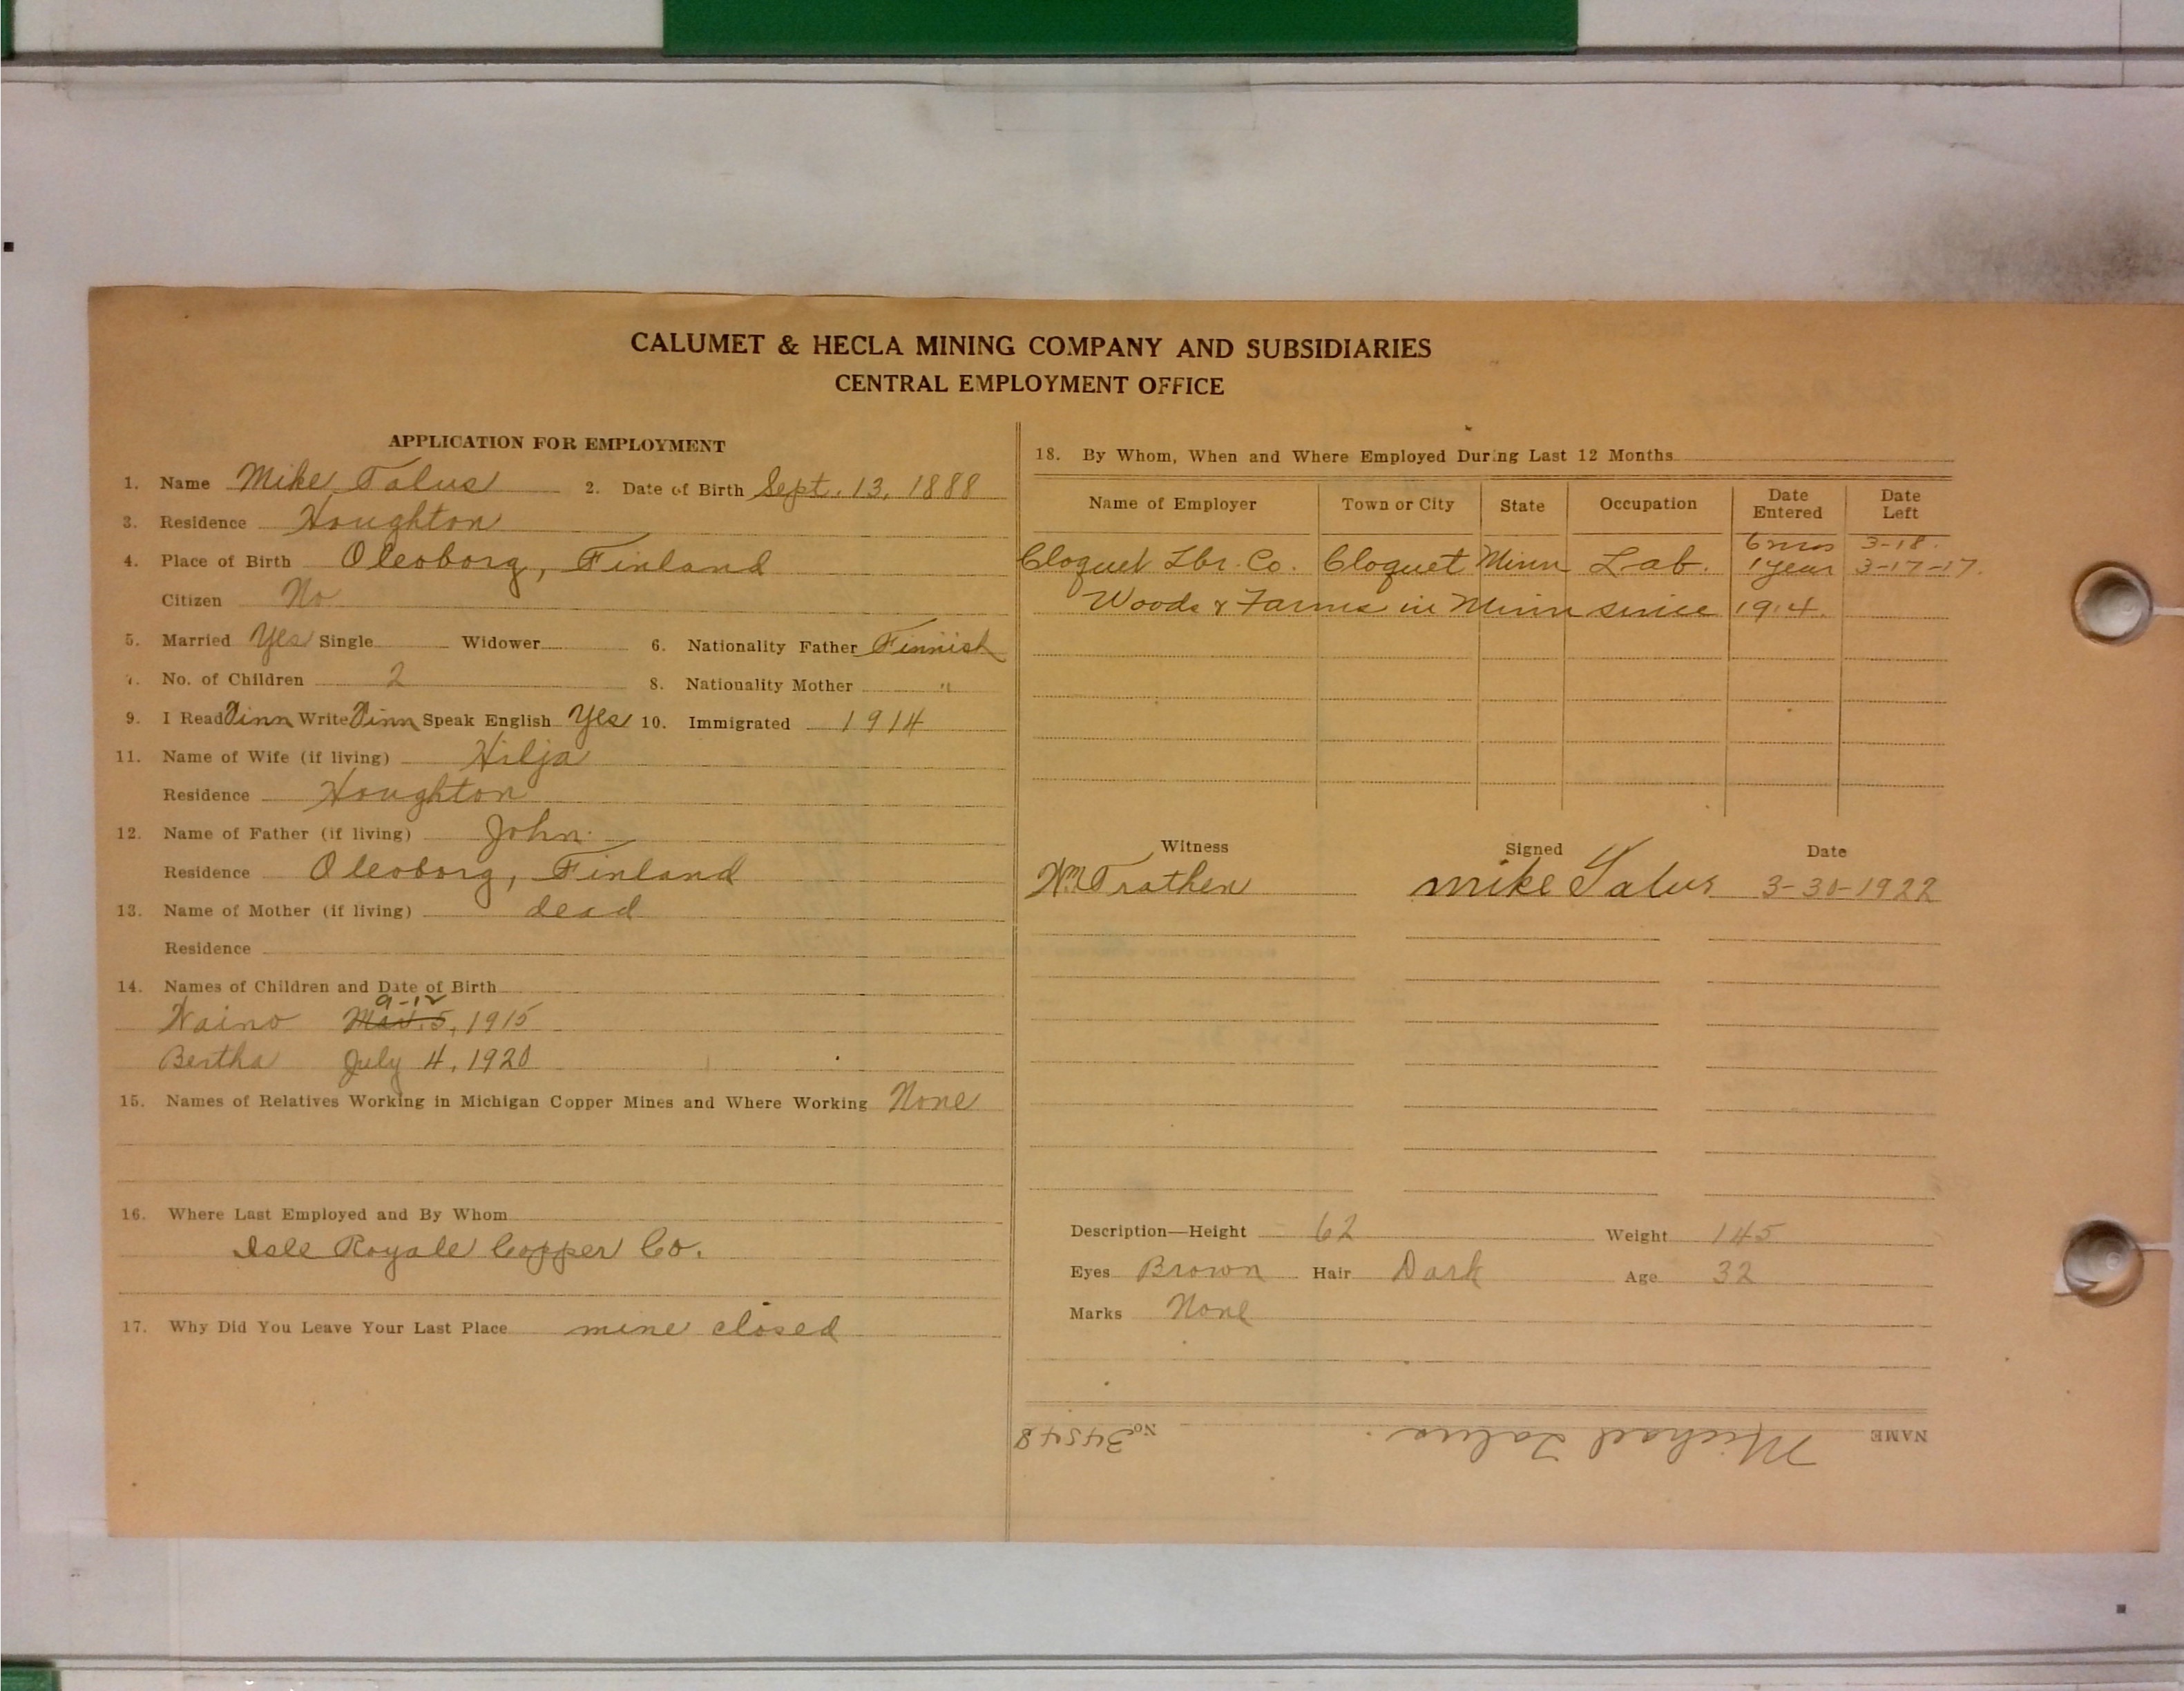 CALUMET & HECLA MINING COMPANY AND SUBSIDIARIES
CENTRAL EMPLOYMENT OFFICE
APPLICATION FOR EMPLOYMENT
1. Name Mike Talus 2. Date of Birth Sept. 13, 1888
3. Residence Houghton
4. Place of Birth Oleoborg, Finland
Citizen No
5. Married Yes Single Widower 6. Nationality Father Finnish
7. No. of Children 2 8. Nationality Mother "
9. I Read Finn Write Finn Speak English Yes 10. Immigrated 1914
11. Name of Wife (if living) Hilja
Residence Houghton
12. Name of Father (if living) John
Residence Oleoborg, Finland
13. Name of Mother (if living) dead
Residence
14. Names of Children and Date of Birth
9-12
Waino Mar. 5, 1915
Bertha July 4, 1920
15. Names of Relatives Working in Michigan Copper Mines and Where Working None
16. Where Last Employed and By Whom
Isle Royale Copper Co.
17. Why Did You Leave Your Last Place mine closed
18. By Whom, When and Where Employed During Last 12 Months
Name of Employer Town or City State Occupation Date Entered Date Left
6 mos 3-18.
Cloquet Lbr. Co. Cloquet Minn Lab. 1 year 3-17-17.
Woods & Farms in Minn since 1914.
Witness Signed Date
Wm Trathen mike Talus 3-30-1922
Description—Height 62 Weight 145
Eyes Brown Hair Dark Age 32
Marks None
NAME Michael Talus. No. 34548